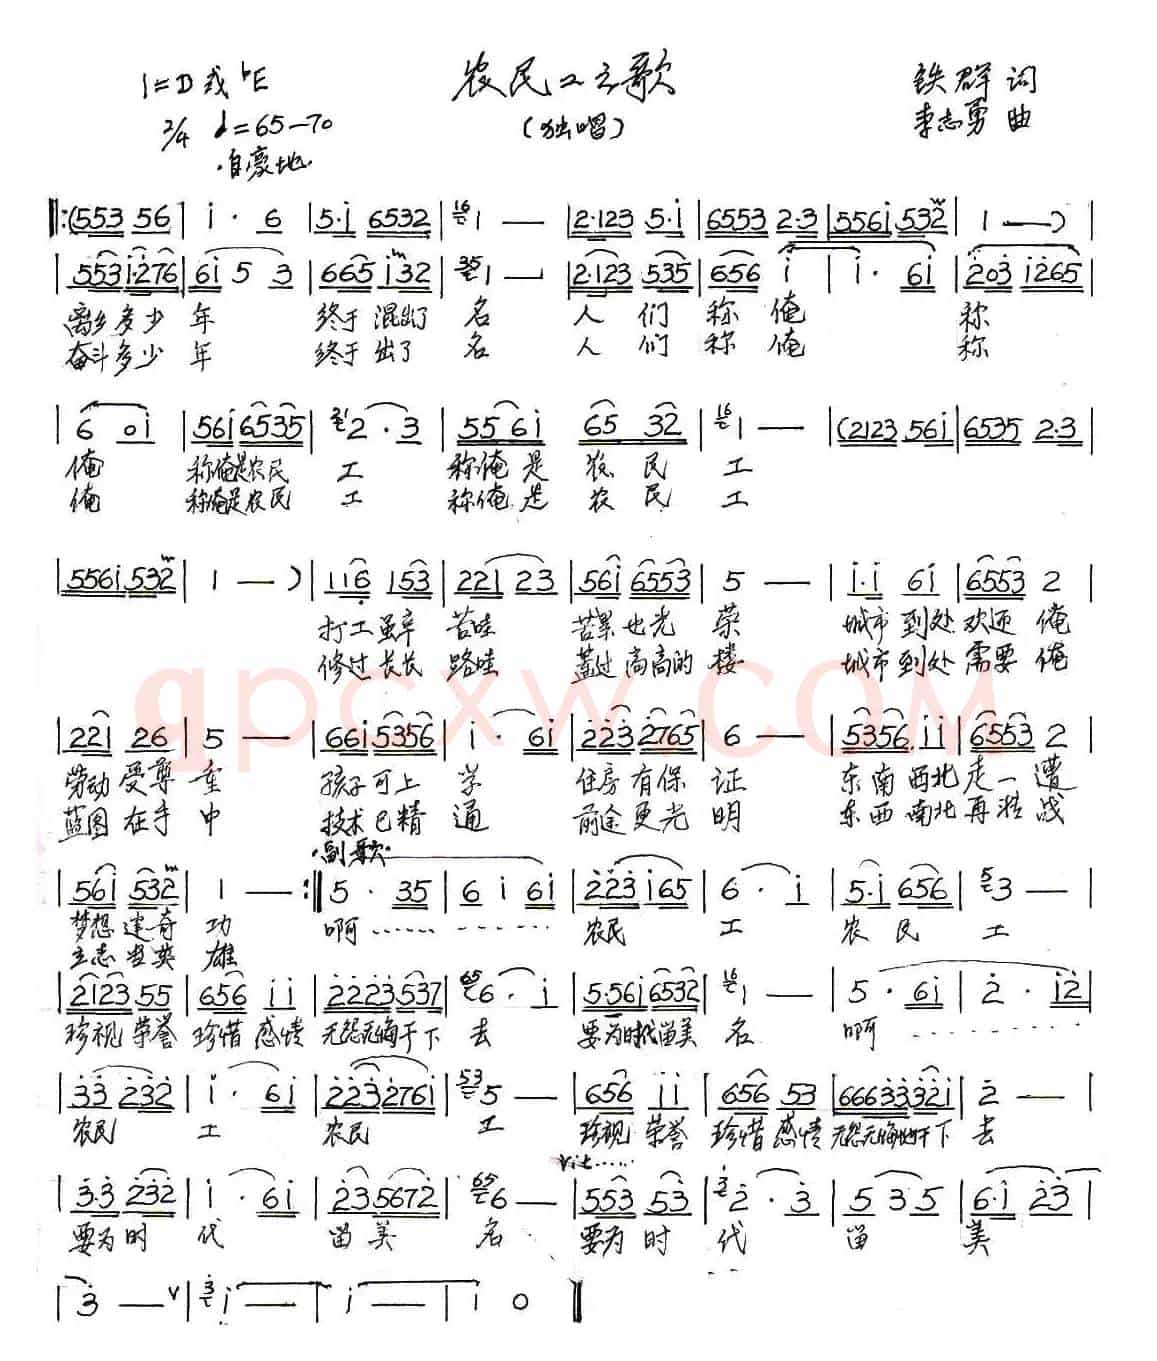 农民工之歌
(独唱)
1=D或♭E
2/4 ♩=65—70
·自豪地·
铁群 词
李志勇 曲
‖:(553 56 | i · 6 | 5·i 6532 | 1 — | 2·123 5·i | 6553 2·3 | 556i 532 | 1 — ) |
553 i·276 | 6i 5 3 | 665 i32 | 1 — | 2·123 535 | 656 i | i · 6i | 203 i265 |
离乡多少 年 终于 混出了 名 人 们 称 俺 称
奋斗多少 年 终于 出了 名 人 们 称 俺 称
| 6 0i | 56i 6535 | 2 · 3 | 55 6i | 65 32 | 1 — | (2123 56i | 6535 2·3 |
俺 称俺是农民 工 称俺 是 农 民 工
俺 称俺是农民 工 称俺 是 农 民 工
| 556i 532 | 1 — ) | 116 153 | 221 23 | 56i 6553 | 5 — | i·i 6i | 6553 2 |
打工虽辛 苦哇 苦累也光 荣 城市到处 欢迎 俺
修过长长 路哇 盖过高高的 楼 城市到处 需要 俺
| 22i 26 | 5 — | 66i 5356 | i · 6i | 223 2765 | 6 — | 5356 ii | 6553 2 |
劳动 受尊 重 孩子可上 学 住房有保 证 东南西北走一遭
蓝图 在手 中 技术已精 通 前途更光 明 东西南北再
·副歌·
| 56i 532 | 1 — :‖ 5 · 35 | 6 i 6i | 223 i65 | 6 · i | 5·i 656 | 3 — |
梦想建奇 功 啊…… 农民 工 农 民 工
立志当英 雄
| 2123 55 | 656 ii | 2223 537 | 6 · i | 5·56i 6532 | 1 — | 5 · 6i | 2 · i2 |
珍视荣誉 珍惜 感情 无怨无悔干下 去 要为时代留美 名 啊
| 33 232 | i · 6i | 223 276i | 5 — | 656 ii | 656 53 | 666 333 32i | 2 — |
农民 工 农民 工 珍视 荣誉 珍惜 感情 无怨无悔地干下 去
rit……
| 3·3 232 | i · 6i | 23 5672 | 6 — | 553 53 | 2 · 3 | 5 3 5 | 6·i 23 |
要为时 代 留 美 名 要为 时 代 留 美
| 3 — ∨ | i — | i — | i 0 ‖
qpcxw.COM